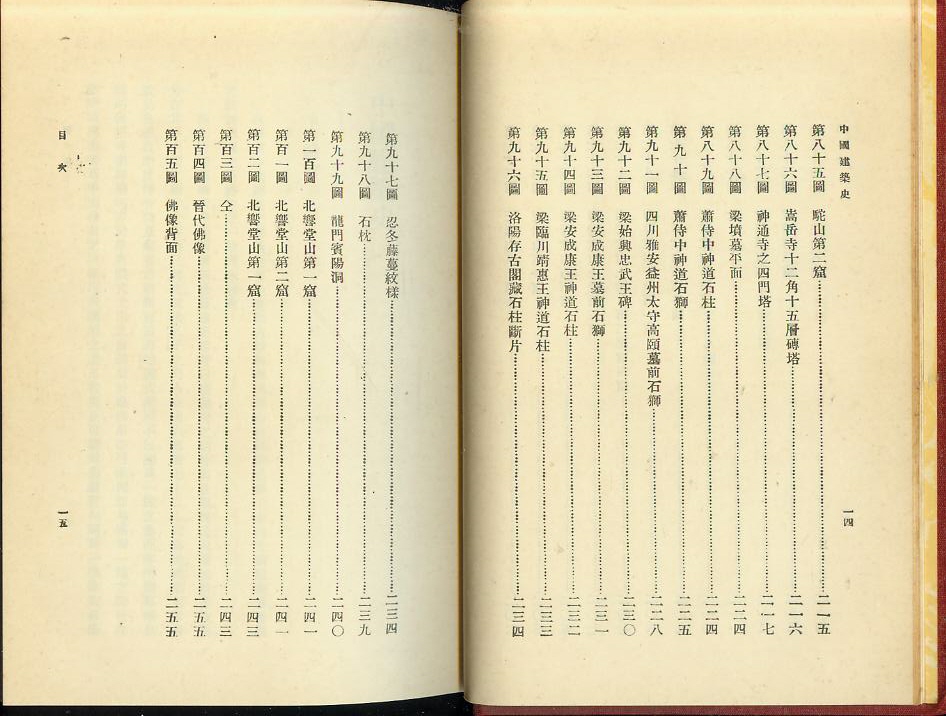 中國建築史
第八十五圖 駝山第二窟……二一五
第八十六圖 嵩岳寺十二角十五層磚塔……二一六
第八十七圖 神通寺之四門塔……二一七
第八十八圖 梁墳墓平面……二二四
第八十九圖 蕭侍中神道石柱……二二四
第九十圖 蕭侍中神道石獅……二二五
第九十一圖 四川雅安益州太守高頤墓前石獅……二二八
第九十二圖 梁始興忠武王碑……二三〇
第九十三圖 梁安成康王墓前石獅……二三一
第九十四圖 梁安成康王神道石柱……二三二
第九十五圖 梁臨川靖惠王神道石柱……二三三
第九十六圖 洛陽存古閣藏石柱斷片……二三四
一四
第九十七圖 忍冬藤蔓紋樣……二三四
第九十八圖 石枕……二三九
第九十九圖 龍門賓陽洞……二四〇
第一百圖 北響堂山第一窟……二四一
第百一圖 北響堂山第二窟……二四一
第百二圖 北響堂山第一窟……二四三
第百三圖 仝……二四三
第百四圖 晉代佛像……二五五
第百五圖 佛像背面……二五五
目次
一五